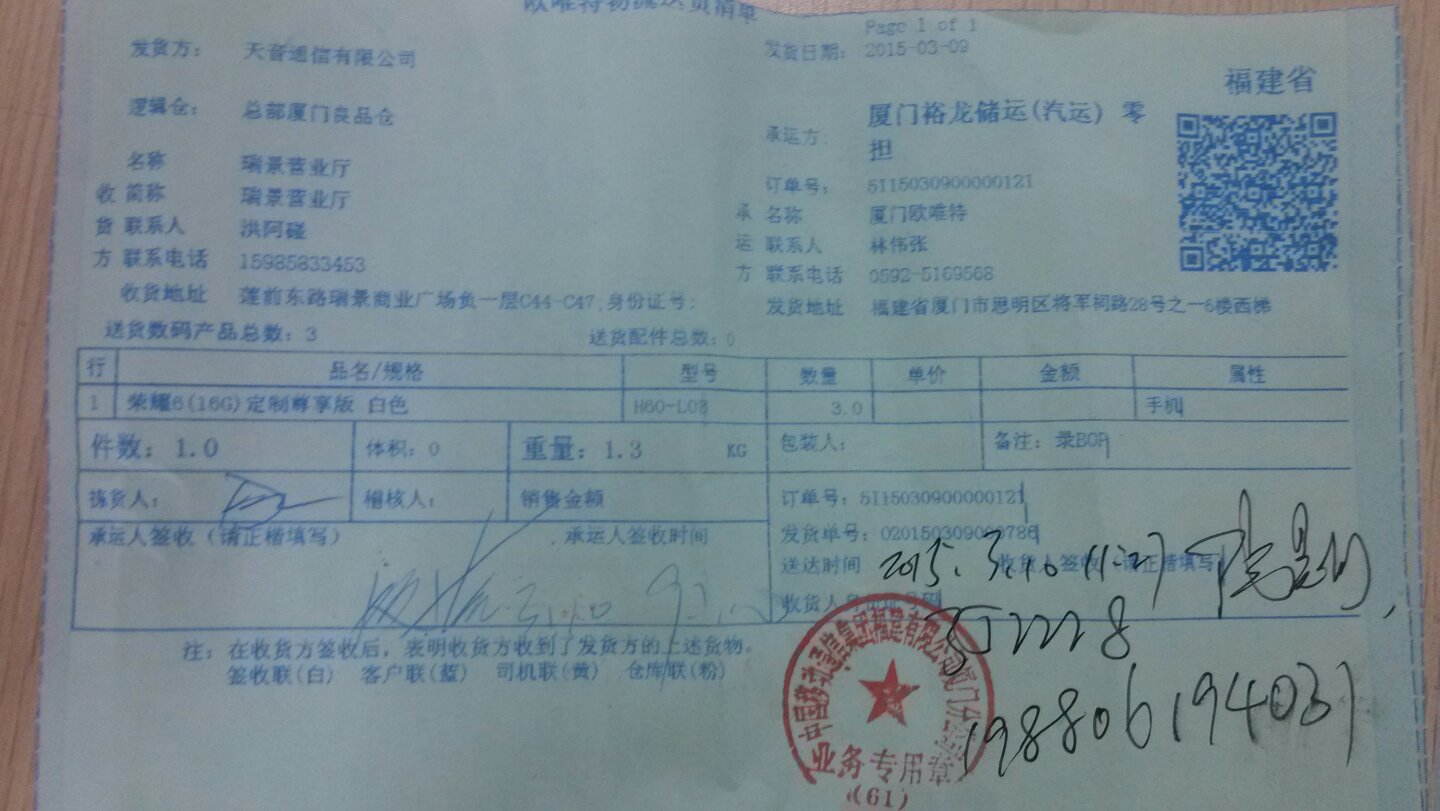 欧唯特物流送货清单
Page 1 of 1
发货方： 天音通信有限公司 发货日期： 2015-03-09
福建省
逻辑仓： 总部厦门良品仓 承运方： 厦门裕龙储运(汽运) 零担
名称 瑞景营业厅 订单号： 5I15030900000121
收 简称 瑞景营业厅 承 名称 厦门欧唯特
货 联系人 洪阿碰 运 联系人 林伟张
方 联系电话 15985833453 方 联系电话 0592-5169568
收货地址 莲前东路瑞景商业广场负一层C44-C47,身份证号: 发货地址 福建省厦门市思明区将军祠路28号之一6楼西梯
送货数码产品总数：3 送货配件总数：0
行 品名/规格 型号 数量 单价 金额 属性
1 荣耀6(16G)定制尊享版 白色 H60-L03 3.0 手机
件数：1.0 体积：0 重量：1.3 KG 包装人： 备注：录BOP
拣货人： 稽核人： 销售金额 订单号：5I15030900000121
承运人签收（请正楷填写） 承运人签收时间 发货单号：020150309000786
送达时间 2015.3.10 11:27 收货人签收（请正楷填写）
收货人身份证号码
3.10
198806194031
注：在收货方签收后，表明收货方收到了发货方的上述货物。
签收联(白) 客户联(蓝) 司机联(黄) 仓库联(粉)
中国移动通信集团福建有限公司厦门分公司
业务专用章
(61)